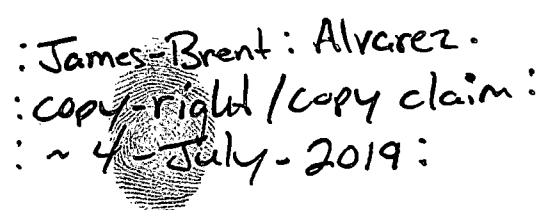 :James-Brent: Alvarez.
:copy-right/copy claim:
:~4-July-2019: